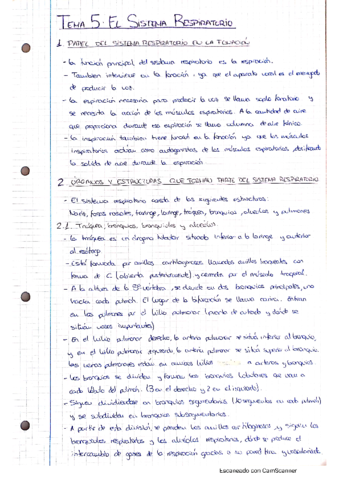 TEMA 5: EL SISTEMA RESPIRATORIO
1. PAPEL DEL SISTEMA RESPIRATORIO EN LA FONACIÓN
- La función principal del sistema respiratorio es la respiración.
- También interviene en la fonación, ya que el aparato vocal es el encargado
de producir la voz.
- La espiración necesaria para producir la voz se llama soplo fonatorio y
se necesita la acción de los músculos espiratorios. A la cantidad de aire
que proporciona durante esa espiración se llama columna de aire
- La inspiración también tiene función en la fonación ya que los músculos
inspiratorios actúan como antagonistas de los músculos espiratorios,
la salida de aire durante la espiración
2. ÓRGANOS Y ESTRUCTURAS QUE FORMAN PARTE DEL SISTEMA RESPIRATORIO
- El sistema respiratorio consta de las siguientes estructuras:
Nariz, fosas nasales, faringe, laringe, tráquea, bronquios, alveolos y pulmones
2.1. Tráquea, bronquios, bronquiolos y alveolos
- La tráquea es un órgano tubular situado inferior a la laringe y anterior
al esófago
- Está formada por anillos cartilaginosos llamados anillos traqueales, con
forma de C (abierta posteriormente) y cerrada por el músculo traqueal.
- A la altura de la 5ª vértebra, se divide en dos bronquios principales, uno
hacia cada pulmón. El lugar de la bifurcación se llama carina. Entran
en los pulmones por el hilio pulmonar (puerta de entrada y donde se
sitúan vasos importantes)
- En el hilio pulmonar derecho, la arteria pulmonar se sitúa inferior al bronquio,
y en el hilio pulmonar izquierdo, la arteria pulmonar se sitúa superior al bronquio.
Las venas pulmonares están en ambos hilios a arterias y bronquios.
- Los bronquios se dividen y forman los bronquios lobulares que van a
cada lóbulo del pulmón. (3 en el derecho y 2 en el izquierdo).
- Siguen dividiéndose en bronquios segmentarios (10 segmentos en cada pulmón)
y se subdividen en bronquios subsegmentarios.
- A partir de esta división, se pierden los anillos cartilaginosos y siguen los
bronquiolos respiratorios y los alveolos respiratorios, donde se produce el
intercambio de gases de la respiración gracias a su pared fina y vascularizada.
Escaneado con CamScanner